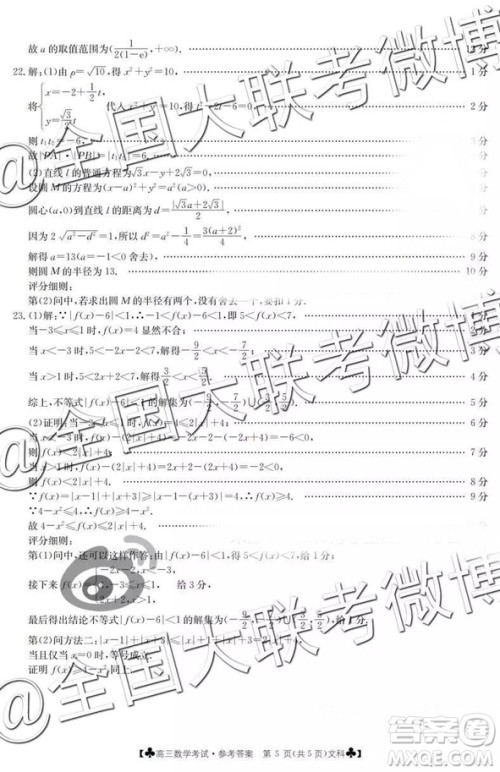 故a的取值范围为(1/(2(1-e)),+∞). 12分
22.解:(1)由ρ=√10,得x²+y²=10, 1分
将{x=-2+1/2t, y=√3/2t 代入x²+y²=10,得t²-2t-6=0, 2分
则t₁t₂=-6,
故|PA|·|PB|=|t₁t₂|=6.
(2)直线l的普通方程为√3x-y+2√3=0,
设圆M的方程为(x-a)²+y²=a²
圆心(a,0)到直线l的距离为d=|√3a+2√3|/2,
因为2√(a²-d²)=1,所以d²=a²-1/4=3(a+2)²/4, 8分
解得a=13(a=-1<0舍去), 9分
则圆M的半径为13. 10分
评分细则:
第(2)问中,若求出圆M的半径有两个,没有舍去一个,要扣1分.
23.(1)解:∵|f(x)-6|<1,∴-1<f(x)-6<1,即5<f(x)<7, 1分
当-3≤x≤1时,f(x)=4显然不合; 2分
当x<-3时,5<-2x-2<7,解得-9/2<x<-7/2;
当x>1时,5<2x+2<7,解得3/2<x<5/2. 4分
综上,不等式|f(x)-6|<1的解集为(-9/2,-7/2)∪(3/2,5/2). 5分
(2)证明:当-3≤x≤1时,f(x)=4≤2|x|+4;
当x<-3时,f(x)-(2|x|+4)=-2x-2-(-2x+4)=-6<0,
则f(x)<2|x|+4;
当x>1时,f(x)-(2|x|+4)=2x+2-(2x+4)=-2<0,
则f(x)<2|x|+4. 8分
∵f(x)=|x-1|+|x+3|≥|x-1-(x+3)|=4,∴f(x)≥4. 9分
∵4-x²≤4,∴f(x)≥4-x².
故4-x²≤f(x)≤2|x|+4. 10分
评分细则:
第(1)问中,还可以这样作答:由|f(x)-6|<1,得5<f(x)<7,给1分;
接下来f(x)= 给3分,
最后得出结论不等式|f(x)-6|<1的解集为 给1分.
第(2)问方法二:|x-1|+|x+3|≤|x|+1+|x|+3=2|x|+4,
当且仅当x=0时,等号成立.
证明f(x)≥4-x²同上.
【♣高三数学考试·参考答案 第5页(共5页)文科♣】
@全国大联考微博
@全国大联考微博
@全国大联考微博